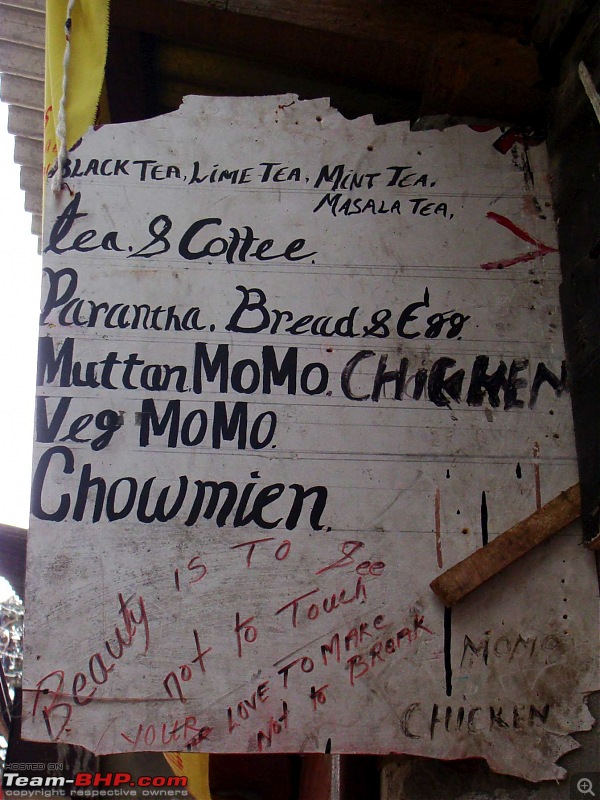 BLACK TEA, LIME TEA, MINT TEA.
MASALA TEA,
tea. & Coffee.
Parantha. Bread & Egg.
Muttan MoMo. CHICKEN
Veg MOMO.
Chowmien.
Beauty is TO See
not to Touch
YOUR LOVE TO MAKE
Not to BREAK
MOMO
CHICKEN
HOSTED ON
Team-BHP.com
copyright respective owners